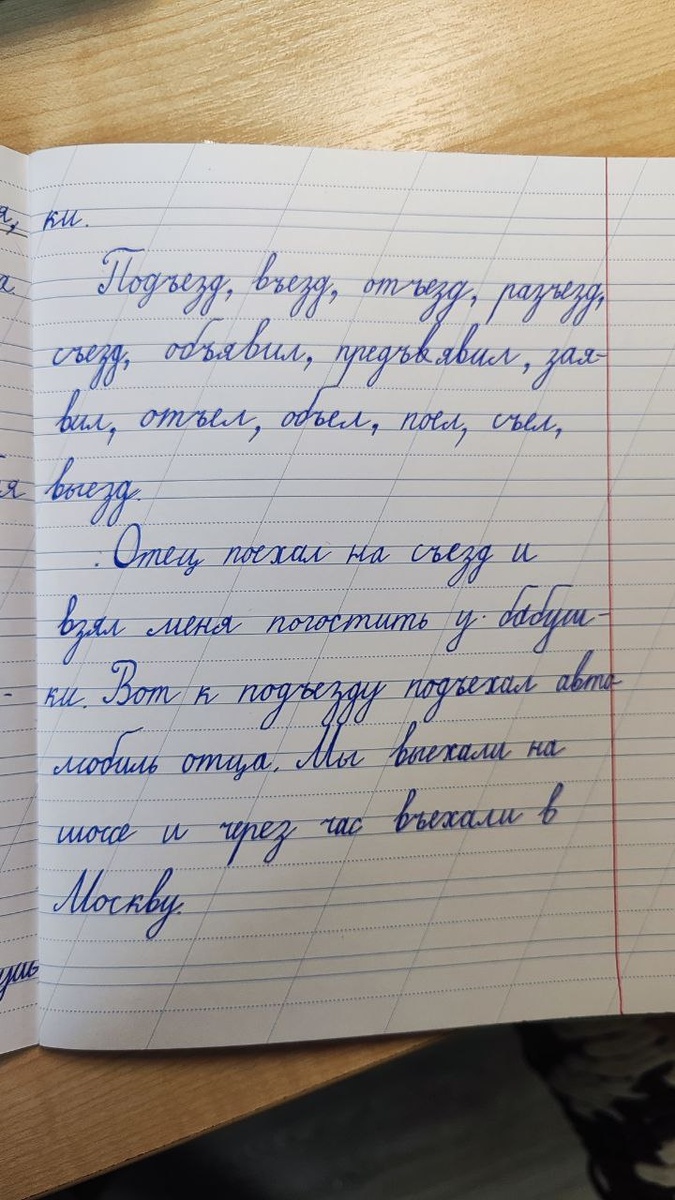 я, ки.
а. Подъезд, въезд, отъезд, разъезд,
съезд, объявил, предъявил, зая-
вил, отъел, объел, поел, съел,
я выезд.
Отец поехал на съезд и
взял меня погостить у бабуш-
- ки. Вот к подъезду подъехал авто
мобиль отца. Мы выехали на
шоссе и через час въехали в
Москву.
ушь